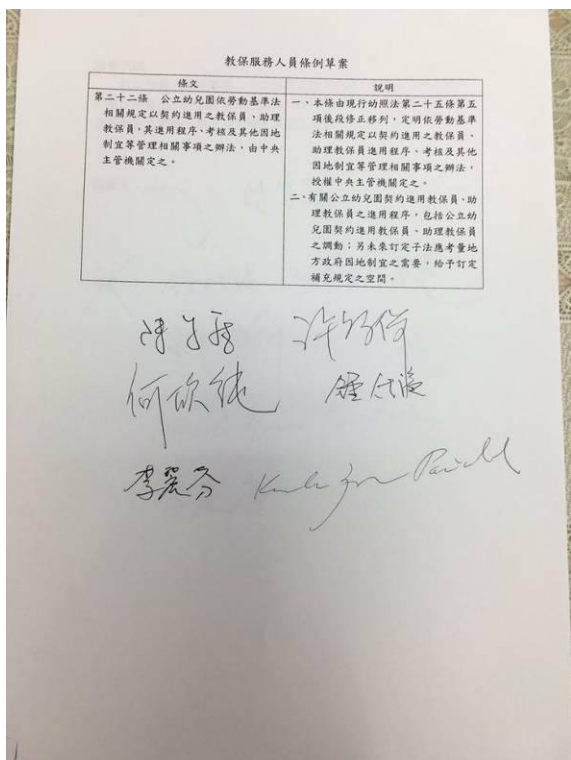 教保服務人員條例草案
條文
第二十二條　公立幼兒園依勞動基準法
相關規定以契約進用之教保員、助理
教保員,其進用程序、考核及其他因地
制宜等管理相關事項之辦法,由中央
主管機關定之。
說明
一、本條由現行幼照法第二十五條第五
項後段修正移列,定明依勞動基準
法相關規定以契約進用之教保員、
助理教保員進用程序、考核及其他
因地制宜等管理相關事項之辦法,
授權中央主管機關定之。
二、有關公立幼兒園契約進用教保員、助
理教保員之進用程序,包括公立幼
兒園契約進用教保員、助理教保員
之調動;另未來訂定子法應考量地
方政府因地制宜之需要,給予訂定
補充規定之空間。
何欣純
李麗芬